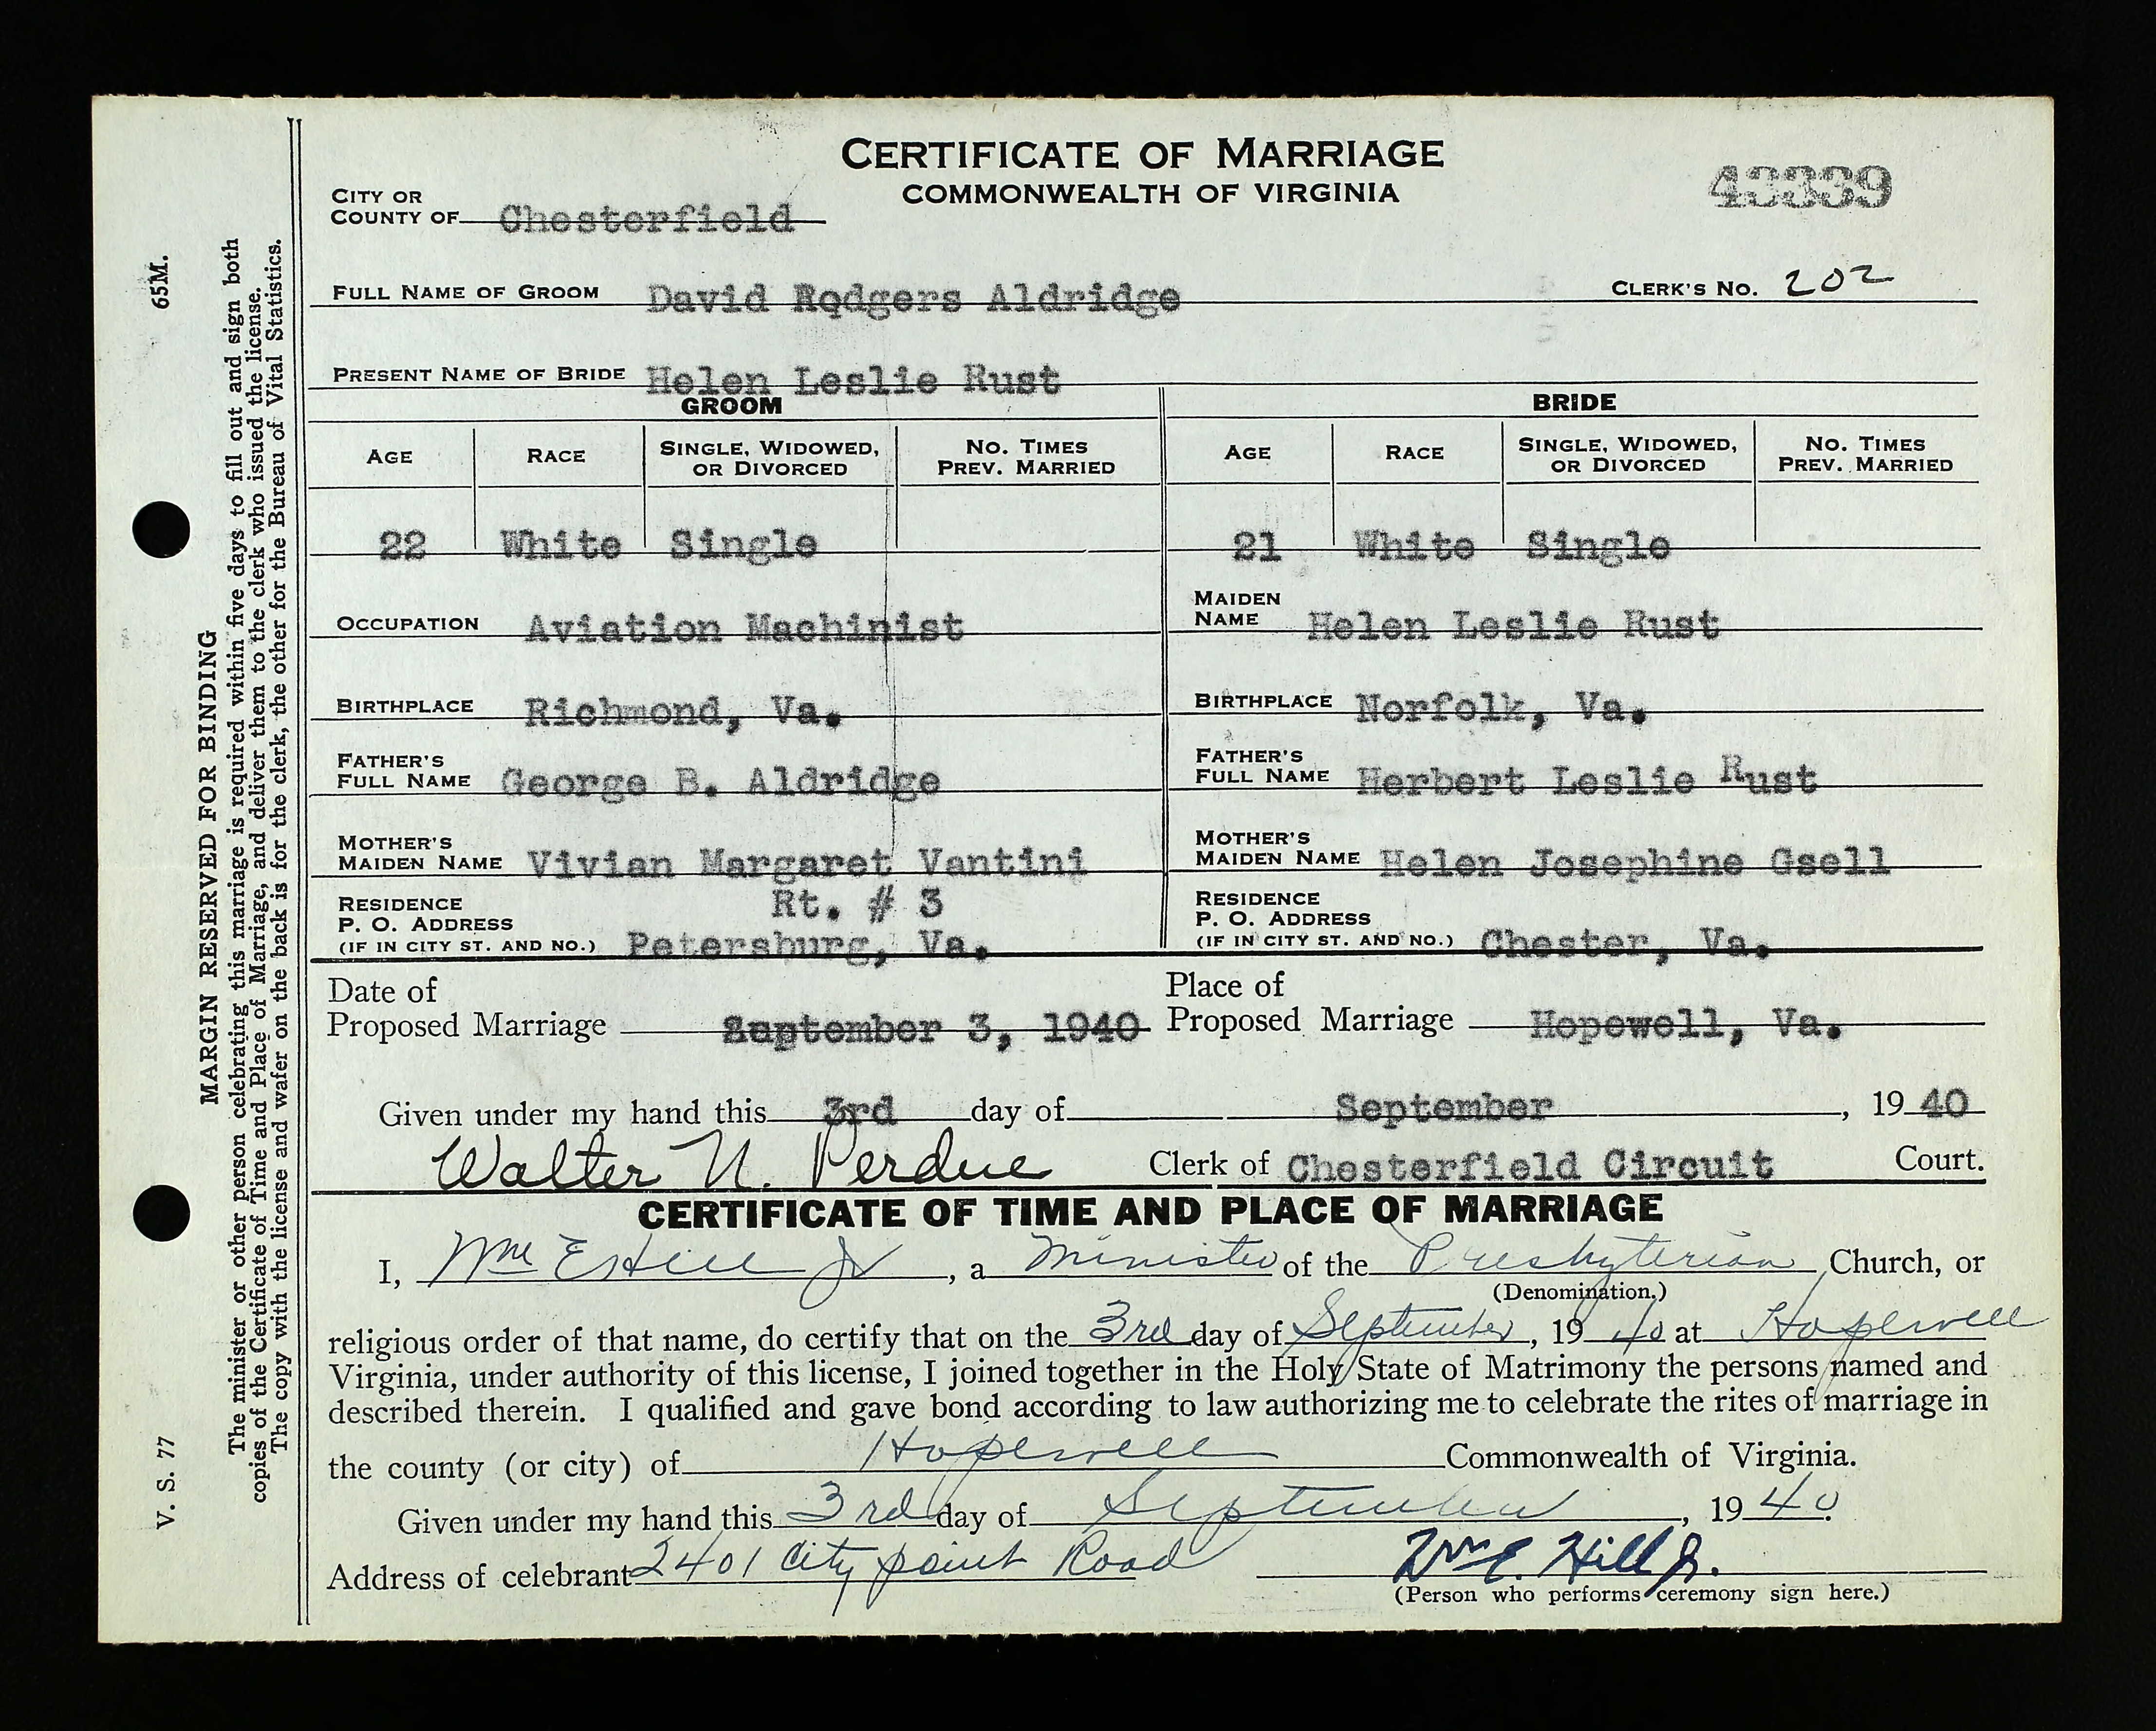 CERTIFICATE OF MARRIAGE
COMMONWEALTH OF VIRGINIA
43339
CITY OR
COUNTY OF Chesterfield
FULL NAME OF GROOM David Rodgers Aldridge CLERK'S NO. 202
PRESENT NAME OF BRIDE Helen Leslie Rust
GROOM BRIDE
AGE RACE SINGLE, WIDOWED, OR DIVORCED NO. TIMES PREV. MARRIED AGE RACE SINGLE, WIDOWED, OR DIVORCED NO. TIMES PREV. MARRIED
22 White Single 21 White Single
OCCUPATION Aviation Machinist MAIDEN NAME Helen Leslie Rust
BIRTHPLACE Richmond, Va. BIRTHPLACE Norfolk, Va.
FATHER'S FULL NAME George B. Aldridge FATHER'S FULL NAME Herbert Leslie Rust
MOTHER'S MAIDEN NAME Vivian Margaret Vantini MOTHER'S MAIDEN NAME Helen Josephine Gsell
RESIDENCE P. O. ADDRESS (IF IN CITY ST. AND NO.) Rt. # 3 Petersburg, Va. RESIDENCE P. O. ADDRESS (IF IN CITY ST. AND NO.) Chester, Va.
Date of Proposed Marriage September 3, 1940 Place of Proposed Marriage Hopewell, Va.
Given under my hand this 3rd day of September, 19 40
Walter N. Perdue Clerk of Chesterfield Circuit Court.
CERTIFICATE OF TIME AND PLACE OF MARRIAGE
I, Wm E Hill Jr, a Minister of the Presbyterian Church, or
(Denomination.)
religious order of that name, do certify that on the 3rd day of September, 19 40 at Hopewell
Virginia, under authority of this license, I joined together in the Holy State of Matrimony the persons named and
described therein. I qualified and gave bond according to law authorizing me to celebrate the rites of marriage in
the county (or city) of Hopewell Commonwealth of Virginia.
Given under my hand this 3rd day of September, 19 40.
Address of celebrant 2401 City point Road Wm E. Hill Jr.
(Person who performs ceremony sign here.)
65M.
V. S. 77
MARGIN RESERVED FOR BINDING
The minister or other person celebrating this marriage is required within five days to fill out and sign both
copies of the Certificate of Time and Place of Marriage, and deliver them to the clerk who issued the license.
The copy with the license and wafer on the back is for the clerk, the other for the Bureau of Vital Statistics.